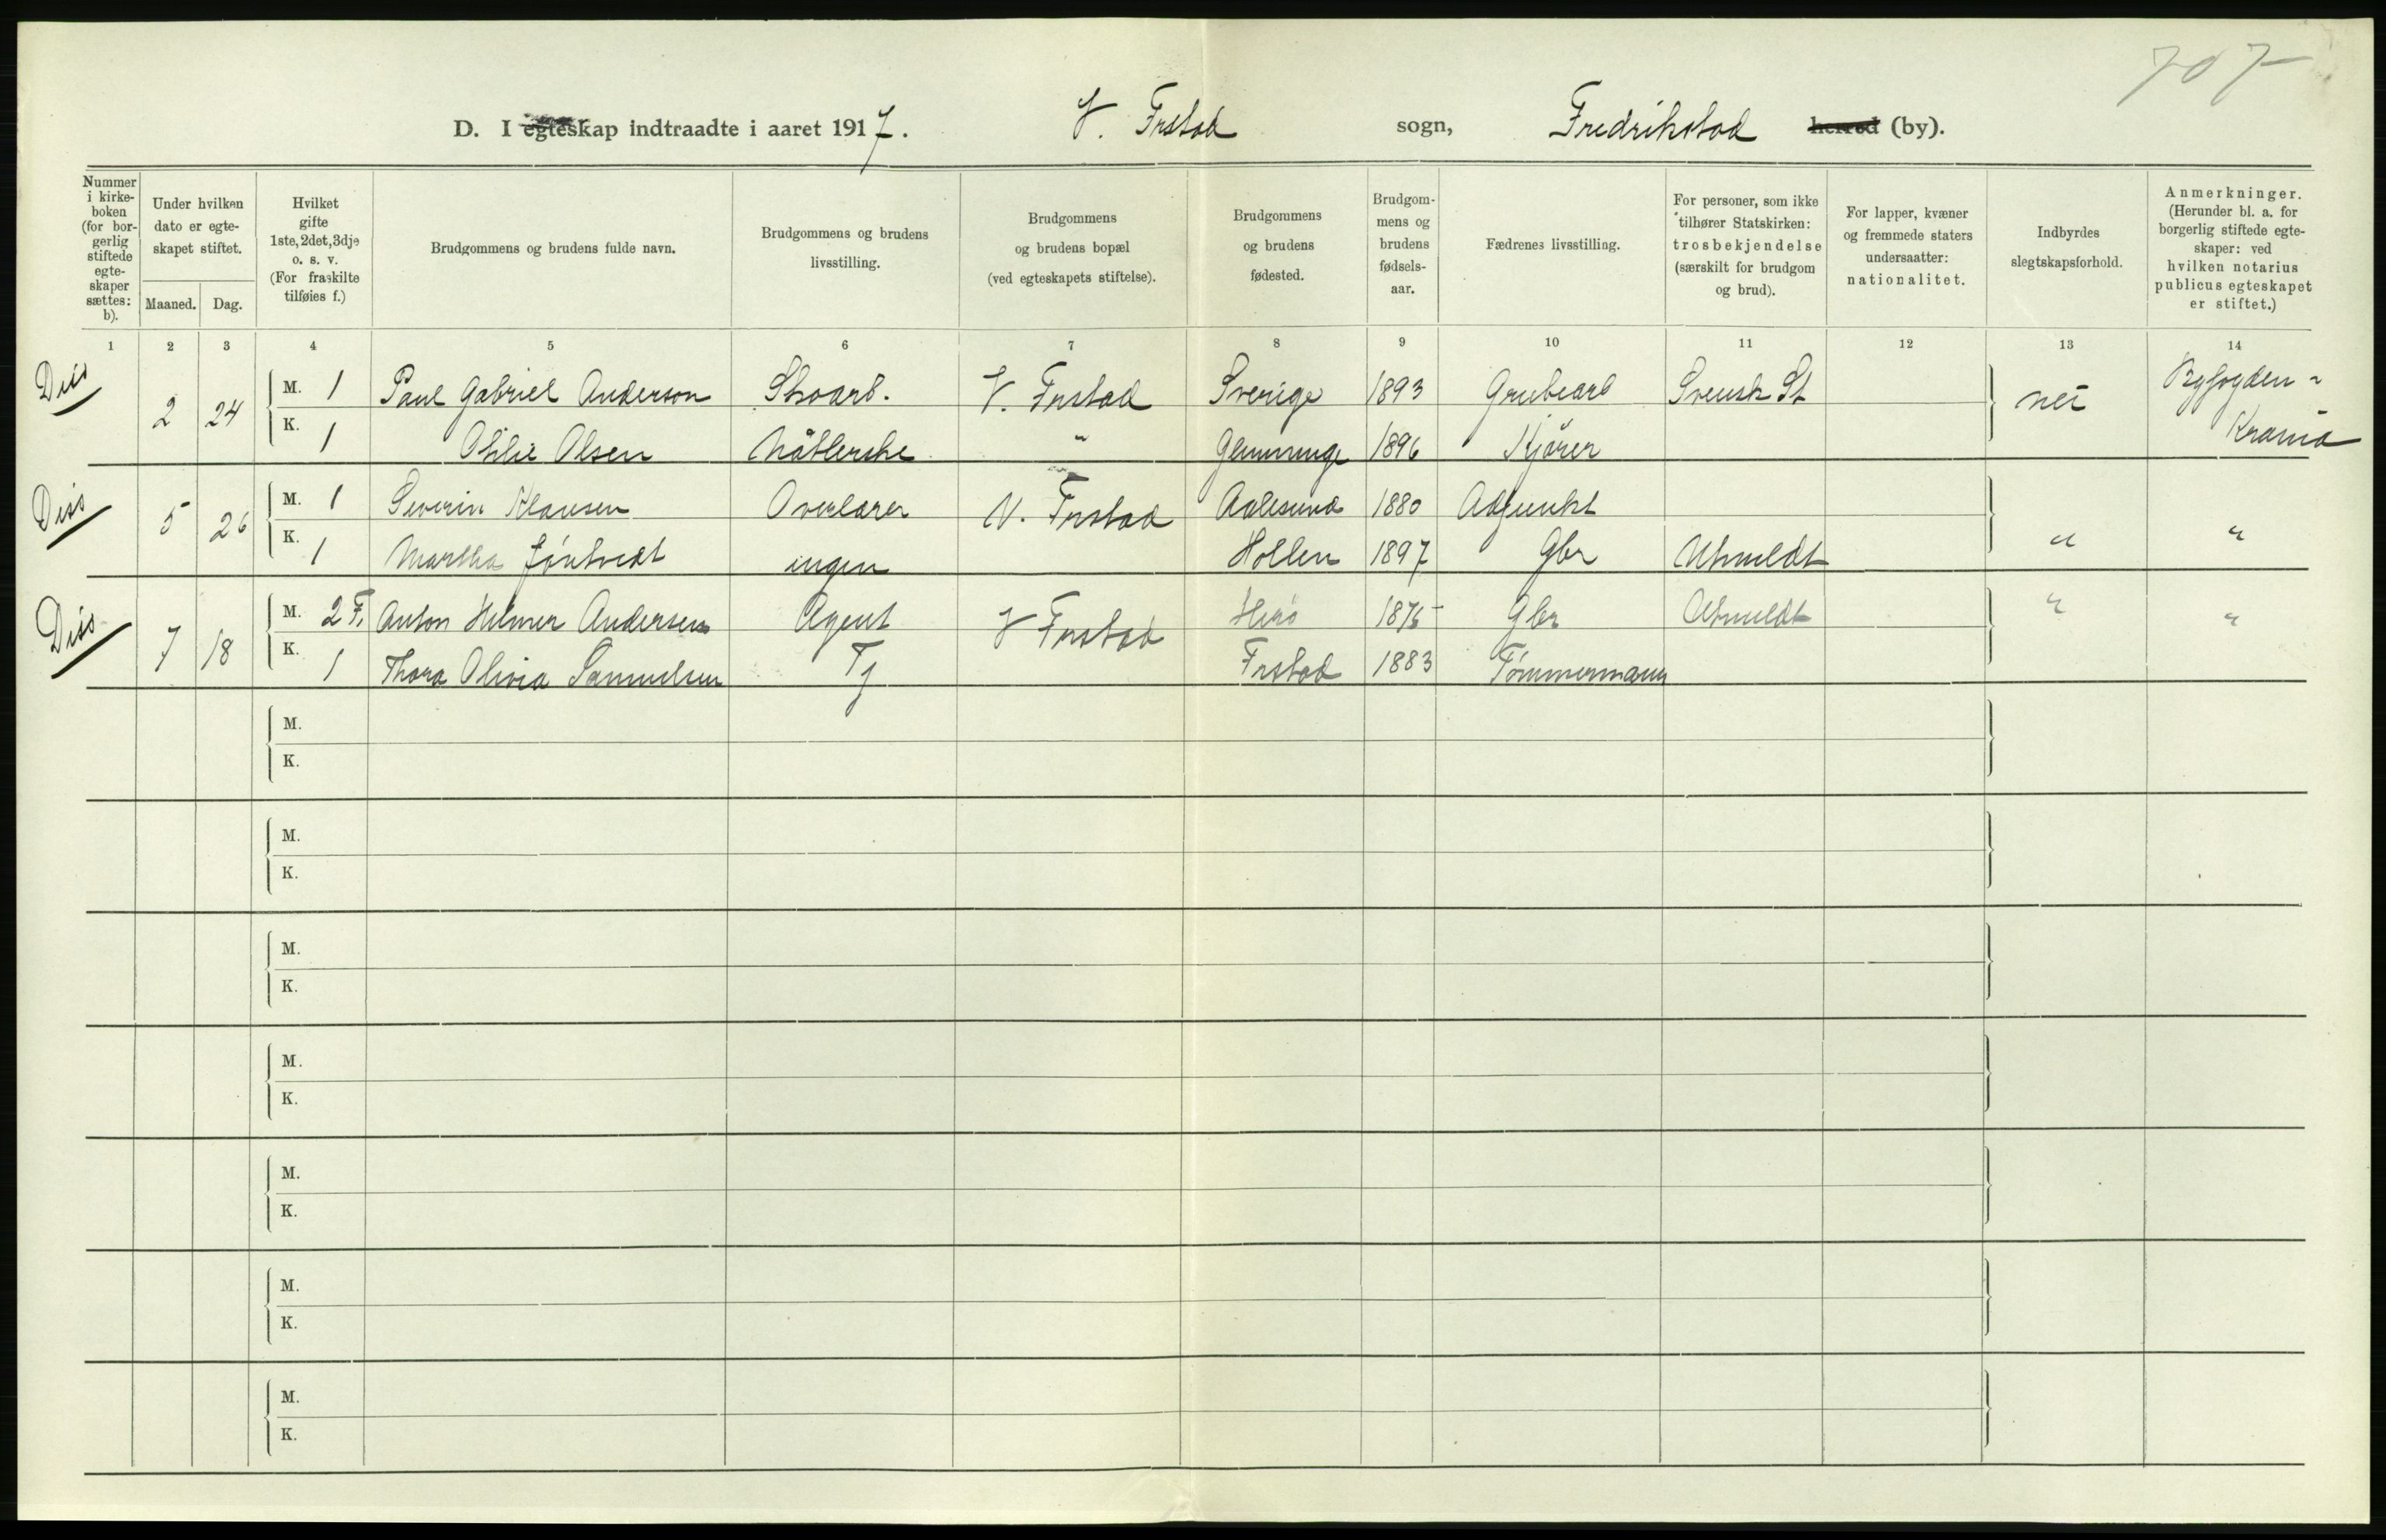 707
D. I egteskap indtraadte i aaret 1917. V. Frstad sogn, Fredrikstad herred (by).
Nummer i kirkeboken (for borgerlig stiftede egteskaper sættes: b).
Under hvilken dato er egteskapet stiftet.
Maaned. Dag.
Hvilket gifte 1ste, 2det, 3dje o. s. v. (For fraskilte tilføies f.)
Brudgommens og brudens fulde navn.
Brudgommens og brudens livsstilling.
Brudgommens og brudens bopæl (ved egteskapets stiftelse).
Brudgommens og brudens fødested.
Brudgommens og brudens fødselsaar.
Fædrenes livsstilling.
For personer, som ikke tilhører Statskirken: trosbekjendelse (særskilt for brudgom og brud).
For lapper, kvæner og fremmede staters undersaatter: nationalitet.
Indbyrdes slegtskapsforhold.
Anmerkninger. (Herunder bl. a. for borgerlig stiftede egteskaper: ved hvilken notarius publicus egteskapet er stiftet.)
1 2 3 4 5 6 7 8 9 10 11 12 13 14
Diss 2 24 M. 1 Paul Gabriel Anderson Skoarb. V. Frstad Sverige 1893 Grubearb Svensk St nei Byfogden
K. 1 Otilie Olsen Nåtlerske " Glemminge 1896 Kjörer Krania
Diss 5 26 M. 1 Severin Klausen Overlærer V. Frstad Aalesund 1880 Adjunkt
K. 1 Martha ingen Hollen 1897 Gbr Utmeldt " "
Diss 7 18 M. 2 F. Anton Helmer Andersen Agent V Frstad Herö 1875 Gbr Utmeldt " "
K. 1 Thora Olivia Samuelsen Tj Frstad 1883 Tömmermann
M.
K.
M.
K.
M.
K.
M.
K.
M.
K.
M.
K.
M.
K.